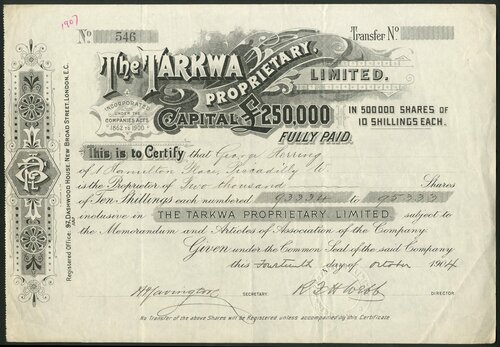 1907
No 546 Transfer No
The TARKWA
PROPRIETARY,
LIMITED.
INCORPORATED
UNDER THE
COMPANIES ACTS
1862 TO 1900
CAPITAL £250,000
IN 500000 SHARES OF
10 SHILLINGS EACH.
FULLY PAID
This is to Certify that George Herring
of 1 Hamilton Place, Piccadilly W
is the Proprietor of Two thousand Shares
of Ten Shillings each numbered 93334 to 95333
inclusive in THE TARKWA PROPRIETARY LIMITED, subject to
the Memorandum and Articles of Association of the Company.
Given under the Common Seal of the said Company
this Fourteenth day of October 1904
SECRETARY. R F H Webb DIRECTOR
No Transfer of the above Shares will be Registered unless accompanied by this Certificate
Registered Office: DASHWOOD HOUSE, NEW BROAD STREET, LONDON, E.C.